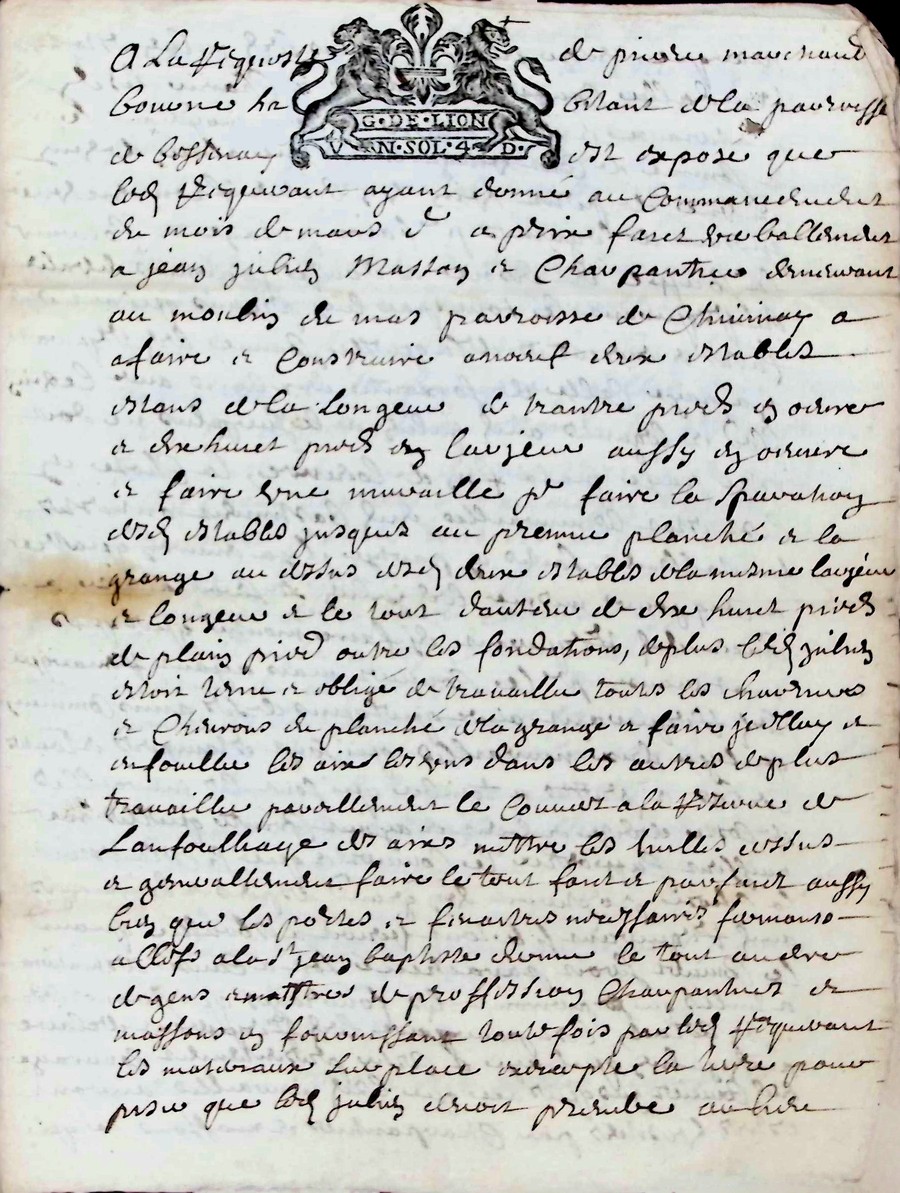 A La Requeste de pierre marchand
bouvene ha bitant de la parroisse
G·DE·LION
VN·SOL·4·D·
de bossenay est expose que
led Requerant ayant donné au Commancement
du mois de mars dr a prix faict verballement
a jean julien Masson et Charpantier demeurant
au moulin du mas parroisse de Chiminay a
afaire et Construire aneuf deux estables
estans de la longeur de trantre pieds en oeuvre
et dixhuict pieds en largeur aussy en oeuvre
et faire une muraille pr faire la sparation
desd estables jusques au premier planché et la
grange au dessus desd deux estables de la mesme largeur
et longeur et le tout dauteur de dix huict pieds
de plain pied outre les fondations, de plus led julien
estoit tenu et obligé de travailler touts les chevrures
et Chevrons du planché de la grange et faire et
enfouiller les aires les uns dans les autres de plus
travailler pareillement le Couvert a la Reserve de
Lanfoulliage des aires mettre les tuilles dessus
et generallement faire le tout faict et parfaict aussy
bien que les portes et fenaitres necessaires fermans
a Clefs a la St jean baptiste derniere le tout au dire
de gens et maittres de proffession Charpantiers et
massons en fournissant toutefois par led Requerant
les materiaux sur place excepte la terre pour
pisé que led julien devoit prendre au lieu